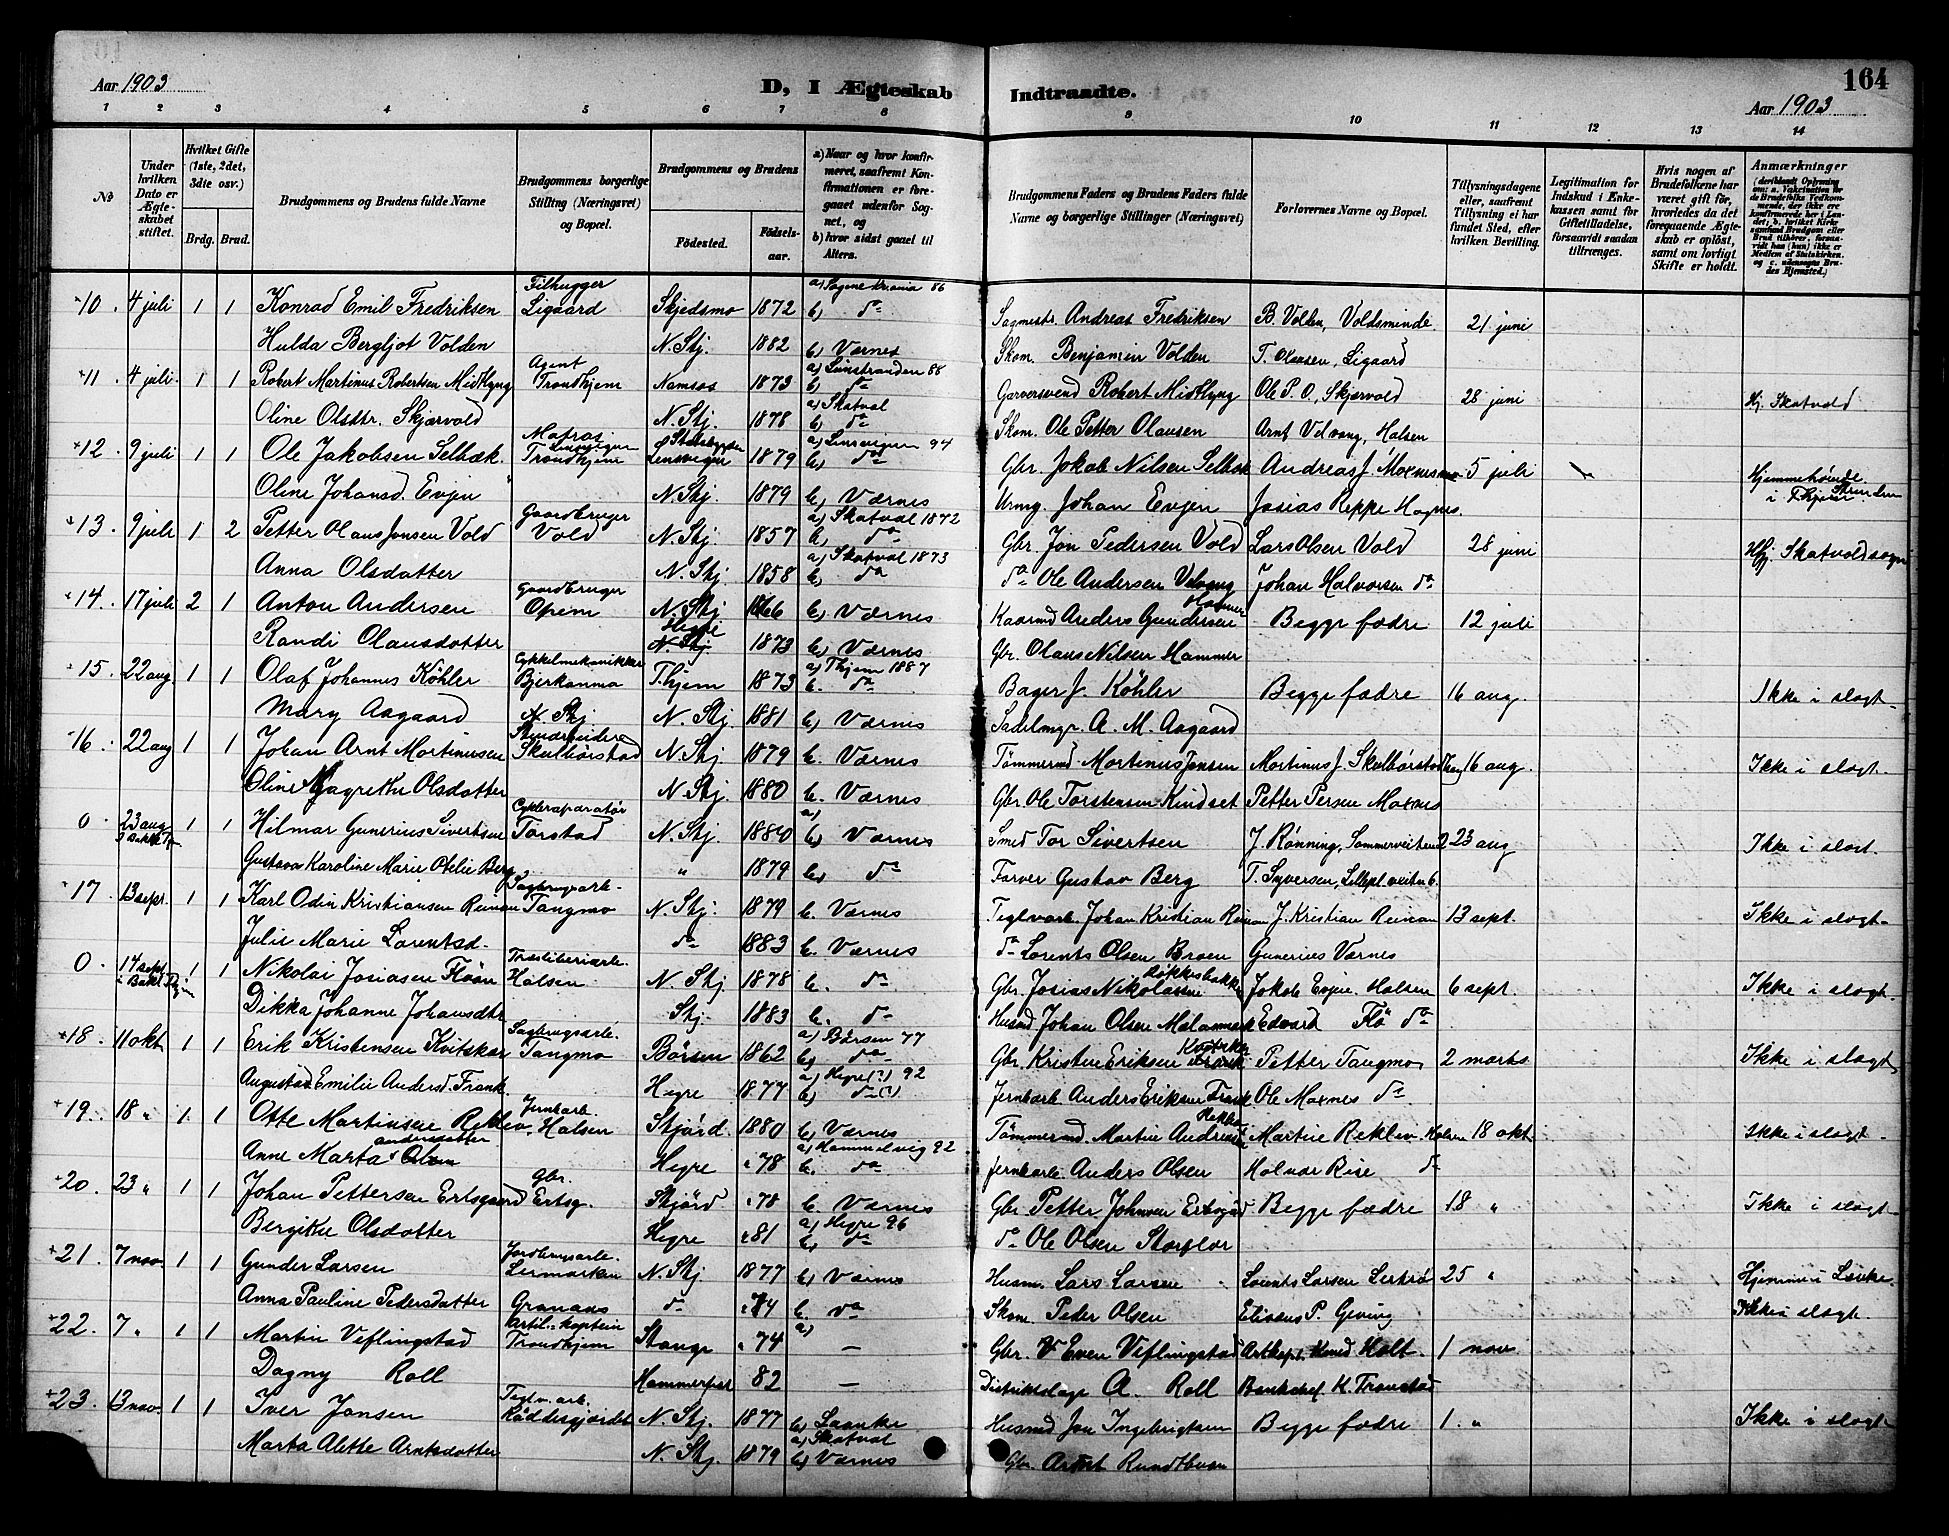 164
Aar 1903
D, I Ægteskab Indtraadte.
Aar 1903
1 2 3 4 5 6 7 8 9 10 11 12 13 14
№
Under hvilken Dato er Ægteskabet stiftet.
Hvilket Gifte (1ste, 2det, 3die osv.)
Brdg. Brud.
Brudgommens og Brudens fulde Navne
Brudgommens borgerlige Stilling (Næringsvei) og Bopæl.
Brudgommens og Brudens
Fødested. Fødselsaar.
a) Naar og hvor konfirmeret, saafremt Konfirmationen er foregaaet udenfor Sognet, og
b) hvor sidst gaaet til Alters.
Brudgommens Faders og Brudens Faders fulde Navne og borgerlige Stillinger (Næringsvei)
Forlovernes Navne og Bopæl.
Tillysningsdagene eller, saafremt Tillysning ei har fundet Sted, efter hvilken Bevilling.
Legitimation for Indskud i Enkekassen samt for Giftetilladelse, forsaavidt saadan tiltrænges.
Hvis nogen af Brudefolkene har været gift før, hvorledes da det foregaaende Ægteskab er opløst, samt om lovligt Skifte er holdt.
Anmærkninger
10. 4 juli 1 1 Konrad Emil Fredriksen Filhugger Ligaard Skjedsmo 1872 b) do Andreas Fredriksen B. Volden, Voldsminde 21 juni
Hulda Bergljot Volden N. Stj. 1882 b) Værnes Skom. Benjamin Volden T. Olausen, Ligaard
11. 4 juli 1 1 Robert Martinus Robertsen Midtlyng Agent Trondhjem Namsos 1873 b) do Garversvend Robert Midtlyng Ole P. O., Skjærvold 28 juni Hj. Skatvold
Oline Olsdtr. Skjærvold N. Stj. 1878 a) Skatval b) do Skom. Ole Petter Olausen Arnt Velvang, Halsen
12. 9 juli 1 1 Ole Jakobsen Selbæk Matros Trondhjem 1879 b) do Gbr. Jokob Nilsen Selbæk Andreas J. Moxnesmo 5 juli Hjemmehørende i Thjem Strinden
Oline Johansd. Evjen N. Stj. 1879 b) Værnes Urmg. Johan Evjen Josias Reppe Hognes
13. 9 juli 1 2 Petter Olaus Jonsen Vold Gaardbruger Vold N. Stj. 1857 a) Skatval 1872 b) do Gbr. Jon Pedersen Vold Lars Olsen Vold 28 juni Hj. Skatvoldsogn
Anna Olsdatter N. Stj. 1858 a) Skatval 1873 b) do do Ole Andersen Velvang Johan Halvorsen do
14. 17 juli 2 1 Anton Andersen Gaardbruger Opem N. Stj 1866 b) Værnes Anders Gundersen Begge fædre 12 juli
Randi Olausdatter Hegre N. Stj. 1873 b) Værnes Gbr. Olaus Nilsen Hammer
15. 22 aug. 1 1 Olaf Johannes Köhler Cykkelmekanikker Bjerkanmo T.hjem 1873 a) Thjem 1887 b. do Bager J. Köhler Begge fædre 16 aug. Ikke i slægt
Mary Aagaard N. Stj N. Stj. 1881 b) Værnes Sadelmgr. A. M. Aagaard
16. 22 aug 1 1 Johan Arnt Martinussen Skulbørstad N. Stj 1879 b. Værnes Tømmermd Martinus Jonsen Martinus J. Skulbørstad 16 aug. Ikke i slægt.
Oline Magrethe Olsdatter N. Stj 1880 b. Værnes Gbr. Ole Torstensen Kindset Petter Persen Moxnes
0 23 aug 1 1 Hilmar Gunerius Sivertsen Cykkelreparatør Torstad N. Stj. 1880 b) Værnes Smed Tor Sivertsen J. Rønning, Sommerveiten 2 23 aug Ikke i slægt.
Gustava Karoline Marie Otelie Berg " 1879 b) do Farver Gustav Berg T. Syversen, Lillepl. veiten 6.
17 13 sept. 1 1 Karl Odin Kristiansen Reinan Sagbrugsarb. Tangmo N. Stj. 1879 b. Værnes Teglvarb. Johan Kristian Reinan J. Kristian Reinan 13 sept. Ikke i slægt
Julie Marie Lorentsd. do 1883 b. Værnes do Lorents Olsen Broen Gunerius Værnes
0 17 sept 1 1 Nikolai Josiasen Fløan Træsliberiarb. Halsen N. Stj 1878 b. do Gbr. Josias Nikolaisen Jokob Evjen Halsen 6 sept. Ikke i slægt.
Dikka Johanne Johansdtr Stj. 1883 b. do Husmd Johan Olsen Edvard Flø do
18. 11 okt 1 1 Erik Kristensen Kvitskar Sagbrugsarb. Tangmo Børsen 1862 a) Børsen 77 b) do Gbr. Kristen Eriksen Petter Tangmo 2 marts Ikke i slægt
Augusta Emilie Andersd. Frank. Hegre 1877 a) Hegre (?) 92 b) do (?) Jernbarb. Anders Eriksen Frank Ole Moxnes do
19. 18 " 1 1 Otte Martinsen Reklev Jernbarb. Halsen Stjørd. 1880 b) Værnes Tømmermd. Martin Andreas Reklev Martin Reklev Halsen 18 okt. Ikke i slægt
Anne Marta andersdatter Olsen Hegre " 78 a) Hommelvig 92 b. do Jernbarb. Anders Olsen Halvar Rise do
20. 23 " 1 1 Johan Pettersen Ertsgaard Gbr. Ertsg. Stjørd " 78 b. Værnes Gbr Petter Johnsen Ertsgård Begge fædre 18 " Ikke i slægt
Bergitte Olsdatter Hegre " 81 a) Hegre 96 b) do do Ole Olsen Storflor
21. 7 nov. 1 1 Gunder Larsen Jordbrugsarb. Lermarken N. Stj 1877 b) Værnes Husm. Lars Larsen Lorents Larsen 25 " Hjemme i Laanke
Anna Pauline Pedersdatter Granaas do " 84 b. do Skom. Peder Olsen P. Geving Ikke i slægt.
22. 7 " 1 1 Martin Veflingstad Artil.-kaptein Trondhjem Stange " 74 a) — Gbr. Even Veflingstad Holt 1 nov
Dagny Roll Hammerfest 82 — Distriktslæge A. Roll Bankchef K. Tronstad
23. 13 nov. 1 1 Iver Jonsen Teglv. arb. Räddesgjerdet N. Stj. 1877 b) Laanke Husmd Jon Ingebrigtsen Begge fædre 1 " Ikke i slægt
Marta Alette Arntsdatter N. Stj. 1879 a) Skatval b) Værnes Gbr. Arnt Rundthaan